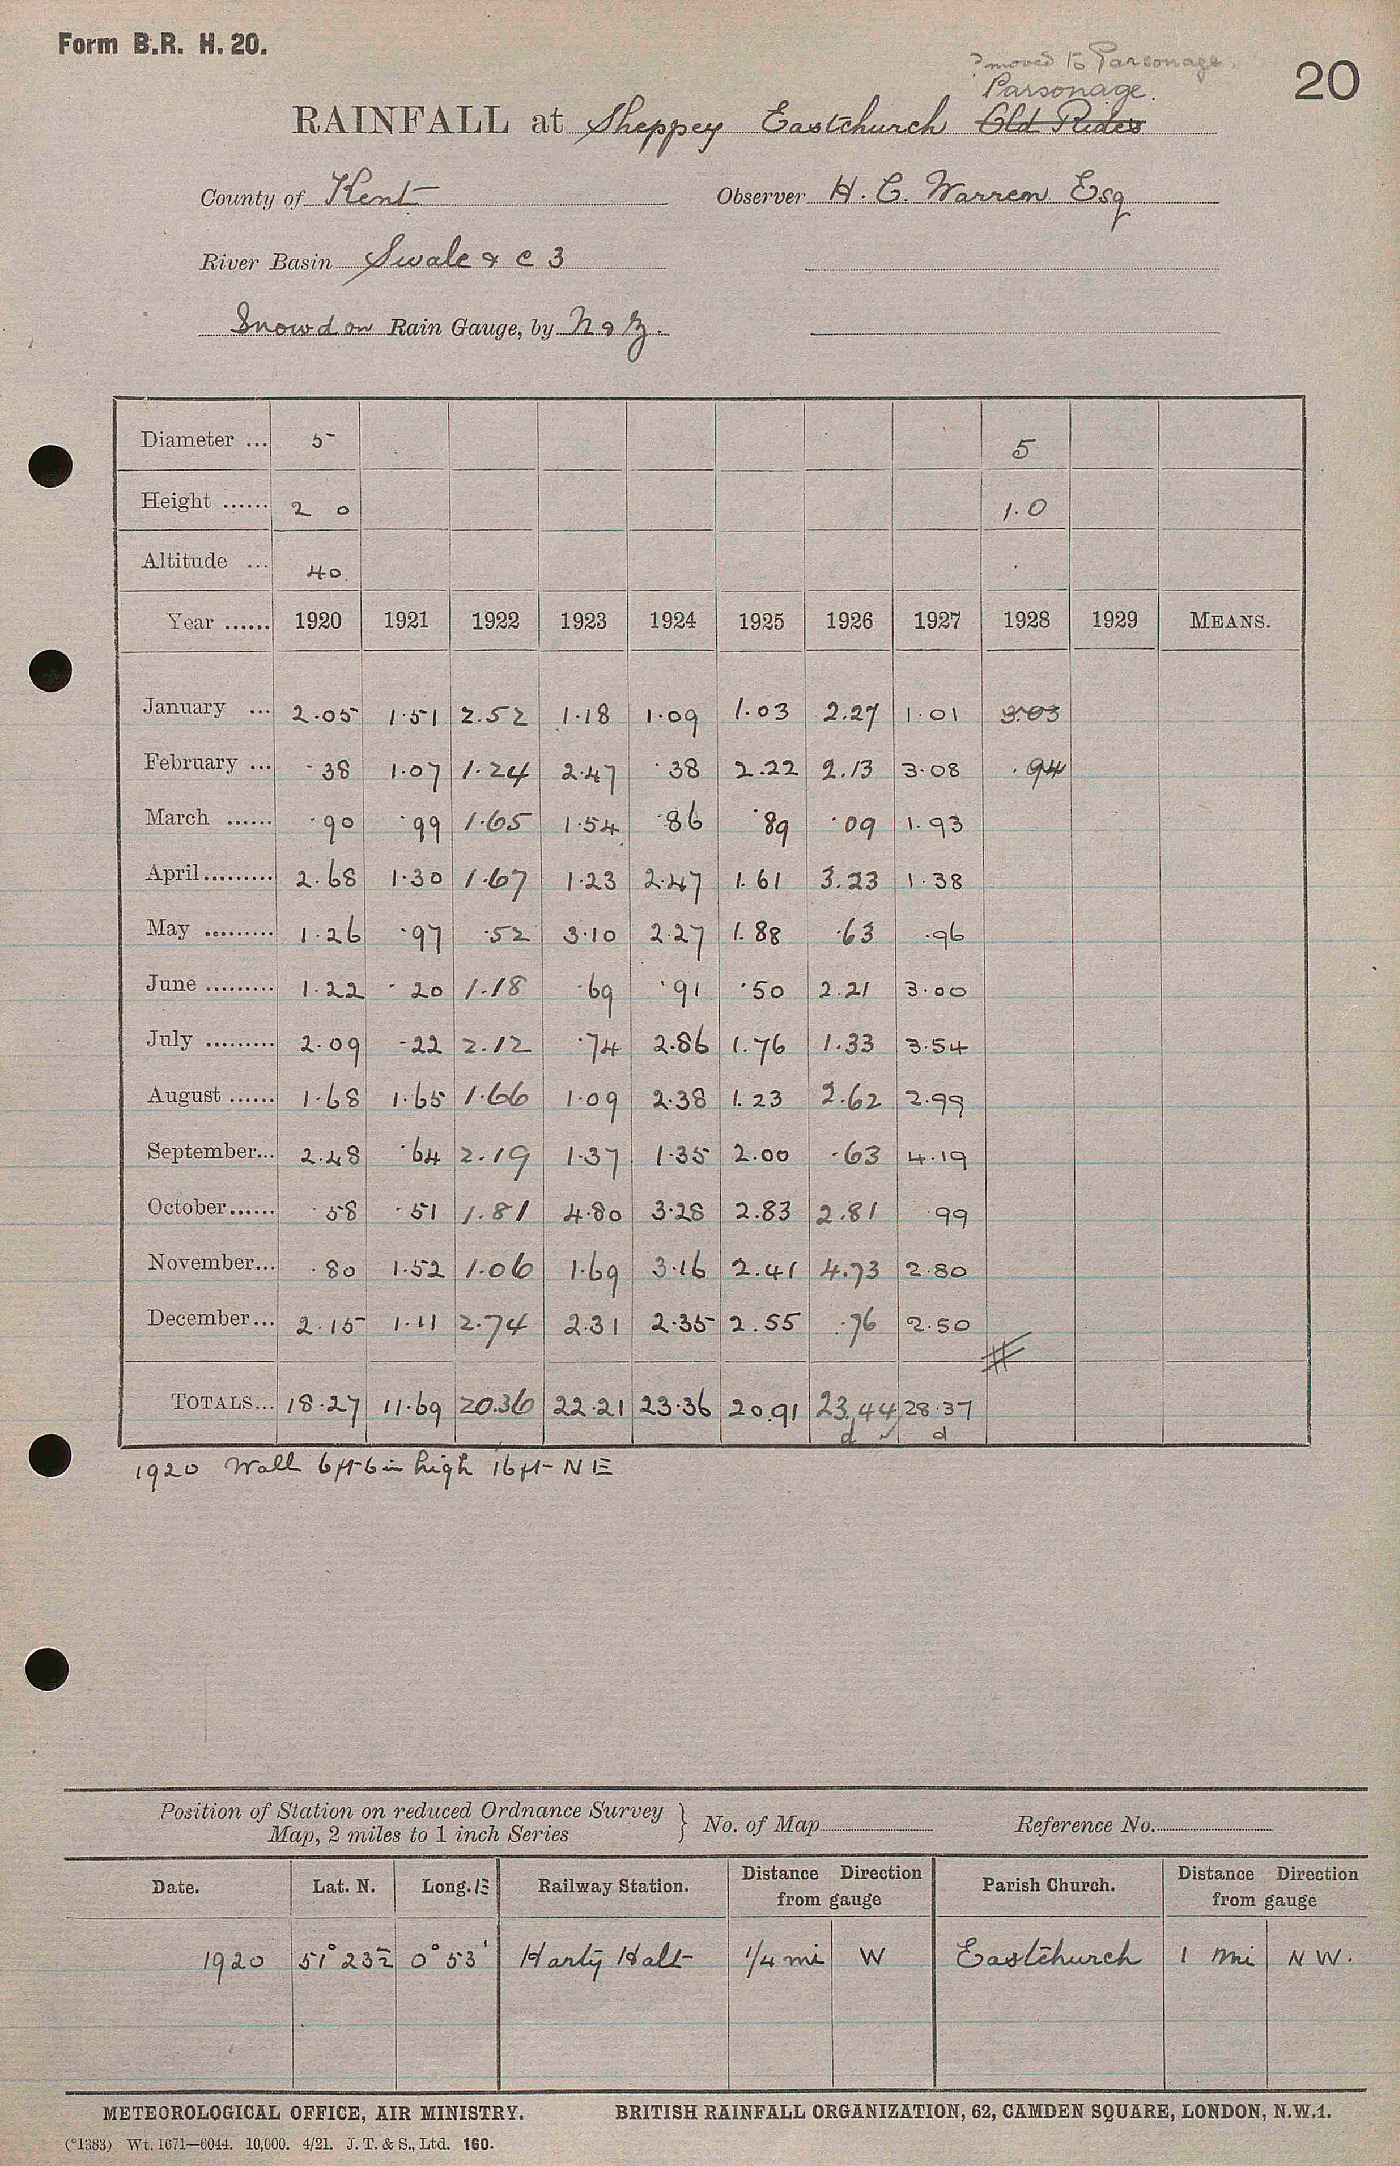 Form B.R. H. 20.
? moved to Parsonage.
20
Parsonage.
RAINFALL at Sheppey Eastchurch Old Rides
County of Kent Observer H. C. Warren Esq
River Basin Swale & c 3
Snowdon Rain Gauge, by N & Z.
Diameter ... 5 5
Height ...... 2 0 1.0
Altitude ... 40
Year ...... 1920 1921 1922 1923 1924 1925 1926 1927 1928 1929 MEANS.
January ... 2.05 1.51 2.52 1.18 1.09 1.03 2.27 1.01 3.03
February ... .38 1.07 1.24 2.47 .38 2.22 2.13 3.08 .94
March ...... .90 .99 1.65 1.54 .86 .89 .09 1.93
April ......... 2.68 1.30 1.67 1.23 2.47 1.61 3.23 1.38
May ......... 1.26 .97 .52 3.10 2.27 1.88 .63 .96
June ......... 1.22 .20 1.18 .69 .91 .50 2.21 3.00
July ......... 2.09 .22 2.12 .74 2.86 1.76 1.33 3.54
August ...... 1.68 1.65 1.66 1.09 2.38 1.23 2.62 2.99
September... 2.48 .64 2.19 1.37 1.35 2.00 .63 4.19
October...... .58 .51 1.81 4.80 3.28 2.83 2.81 .99
November... .80 1.52 1.06 1.69 3.16 2.41 4.73 2.80
December... 2.15 1.11 2.74 2.31 2.35 2.55 .76 2.50
TOTALS... 18.27 11.69 20.36 22.21 23.36 20.91 23.44 28.37
d ✓ d
1920 Wall 6ft 6in high 16ft NE
Position of Station on reduced Ordnance Survey
Map, 2 miles to 1 inch Series } No. of Map Reference No.
Date. Lat. N. Long. E Railway Station. Distance Direction from gauge Parish Church. Distance Direction from gauge
1920 51° 23½ 0° 53' Harty Halt ¼ mi W Eastchurch 1 mi NW.
METEOROLOGICAL OFFICE, AIR MINISTRY. BRITISH RAINFALL ORGANIZATION, 62, CAMDEN SQUARE, LONDON, N.W.1.
(*1383) Wt. 1671—6044. 10,000. 4/21. J. T. & S., Ltd. 160.